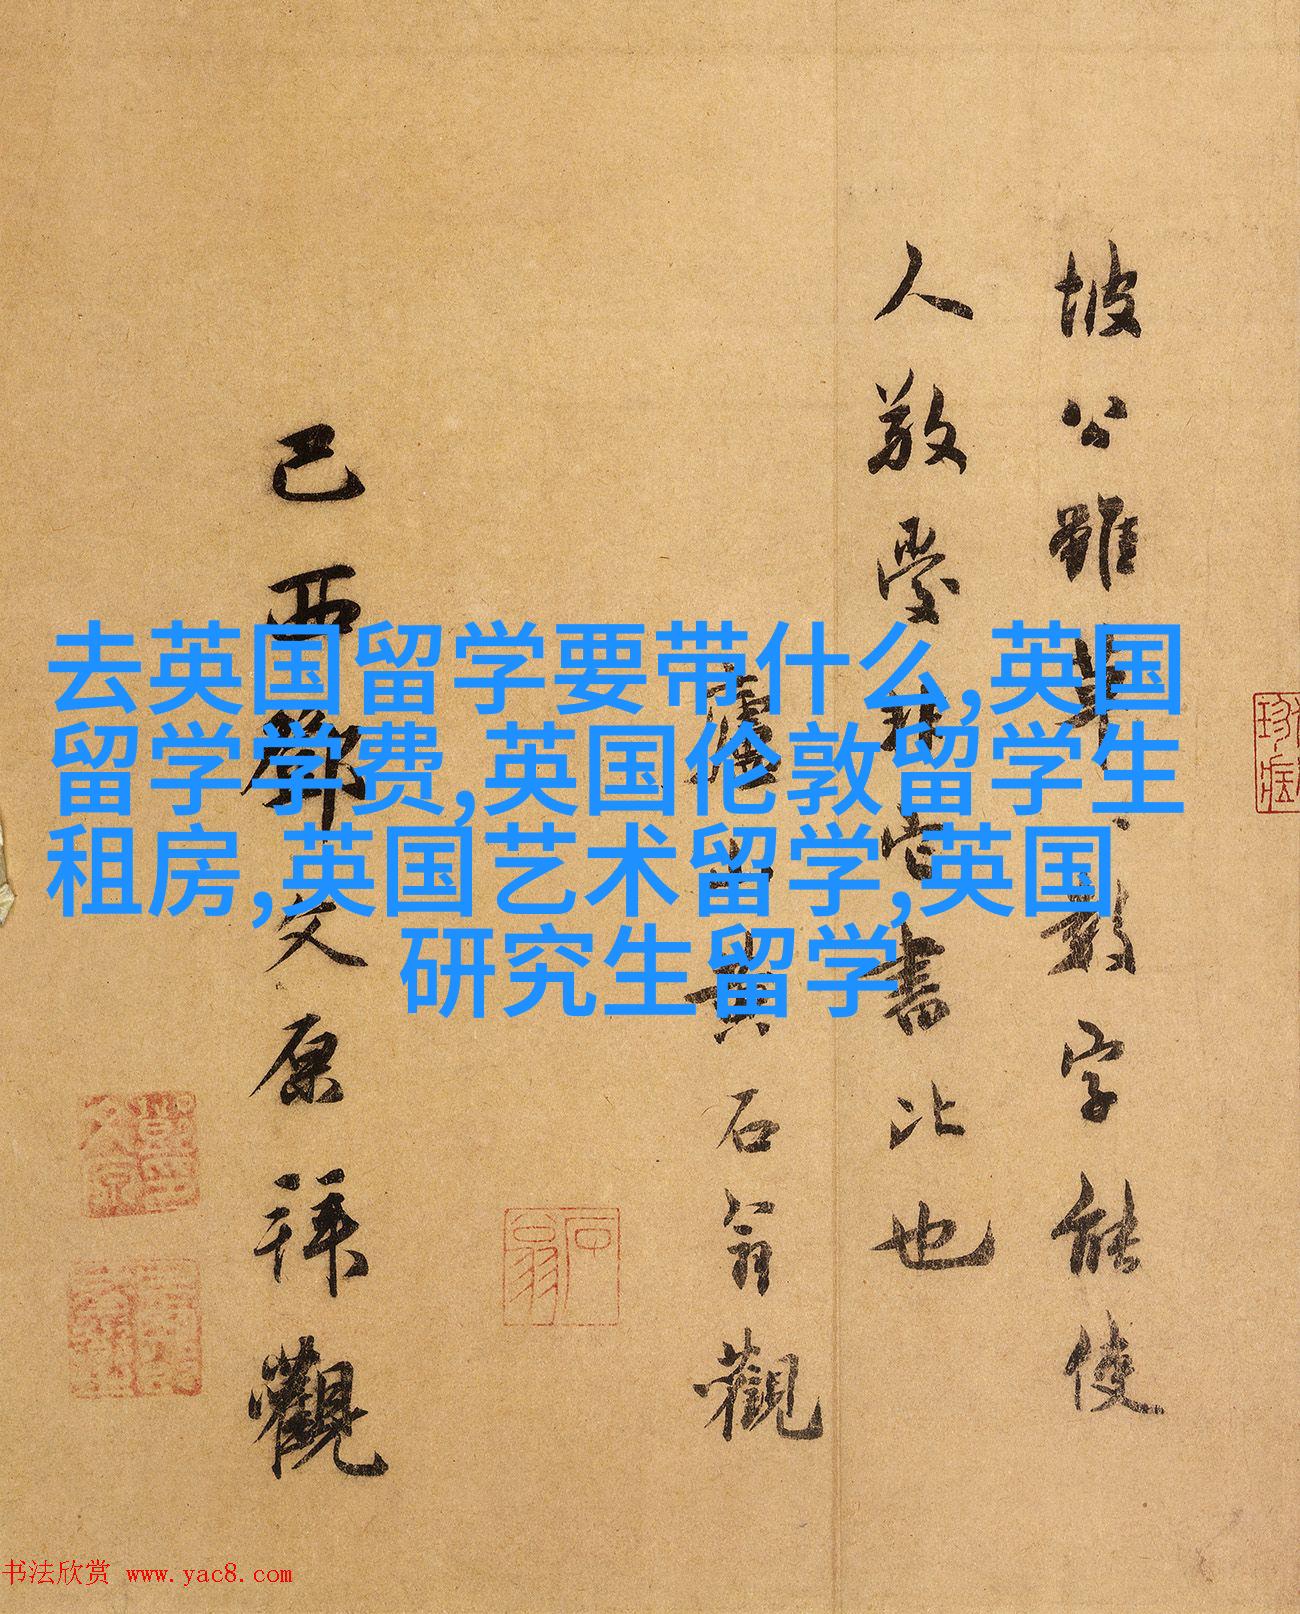 去英国留学要带什么,英国
留学学费,英国伦敦留学生
租房,英国艺术留学,英国
研究生留学
坡公雖單〻數字能使
人敬愛 書此也
黄石翁觀
己酉鄧文原拜觀
石翁
书法欣赏 www.yac8.com